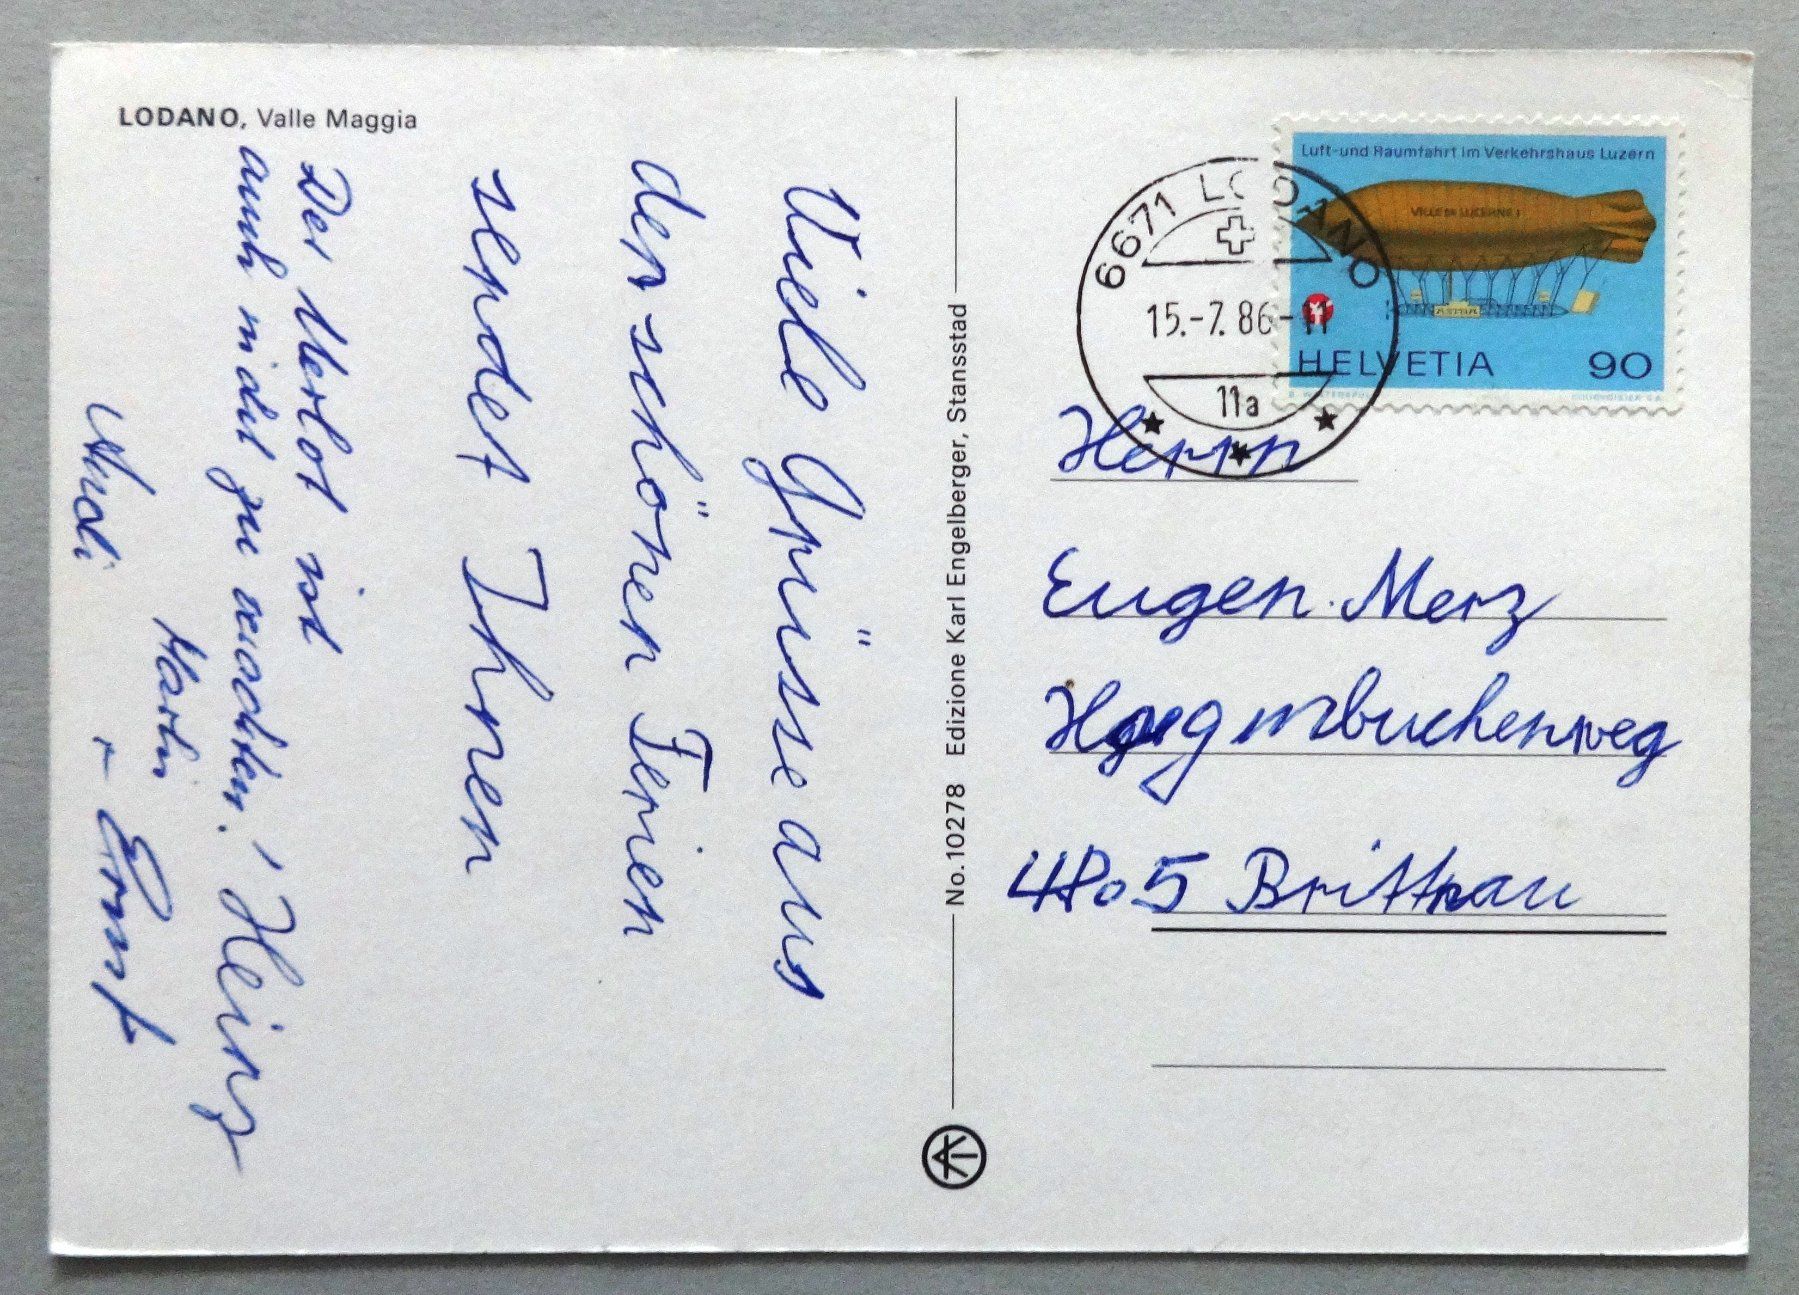 LODANO, Valle Maggia
Viele Grüsse aus
den schönen Ferien
sendet Ihnen
Der Merlot ist
auch nicht zu verachten! Heinz
Martin
Andi + Ernst
No. 10278 Edizione Karl Engelberger, Stansstad
6671 LODANO
15.-7.86-11
11a
Luft-und Raumfahrt im Verkehrshaus Luzern
VILLE DE LUCERNE I
ASTRA
HELVETIA 90
COURVOISIER SA
Herrn
Eugen Merz
Hagenbuchenweg
4805 Brittnau